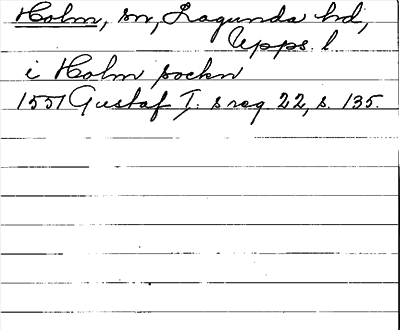 Holm, sn, Lagunda hd,
Upps. l
i Holm sockn
1551 Gustaf I:s reg 22, s. 135.